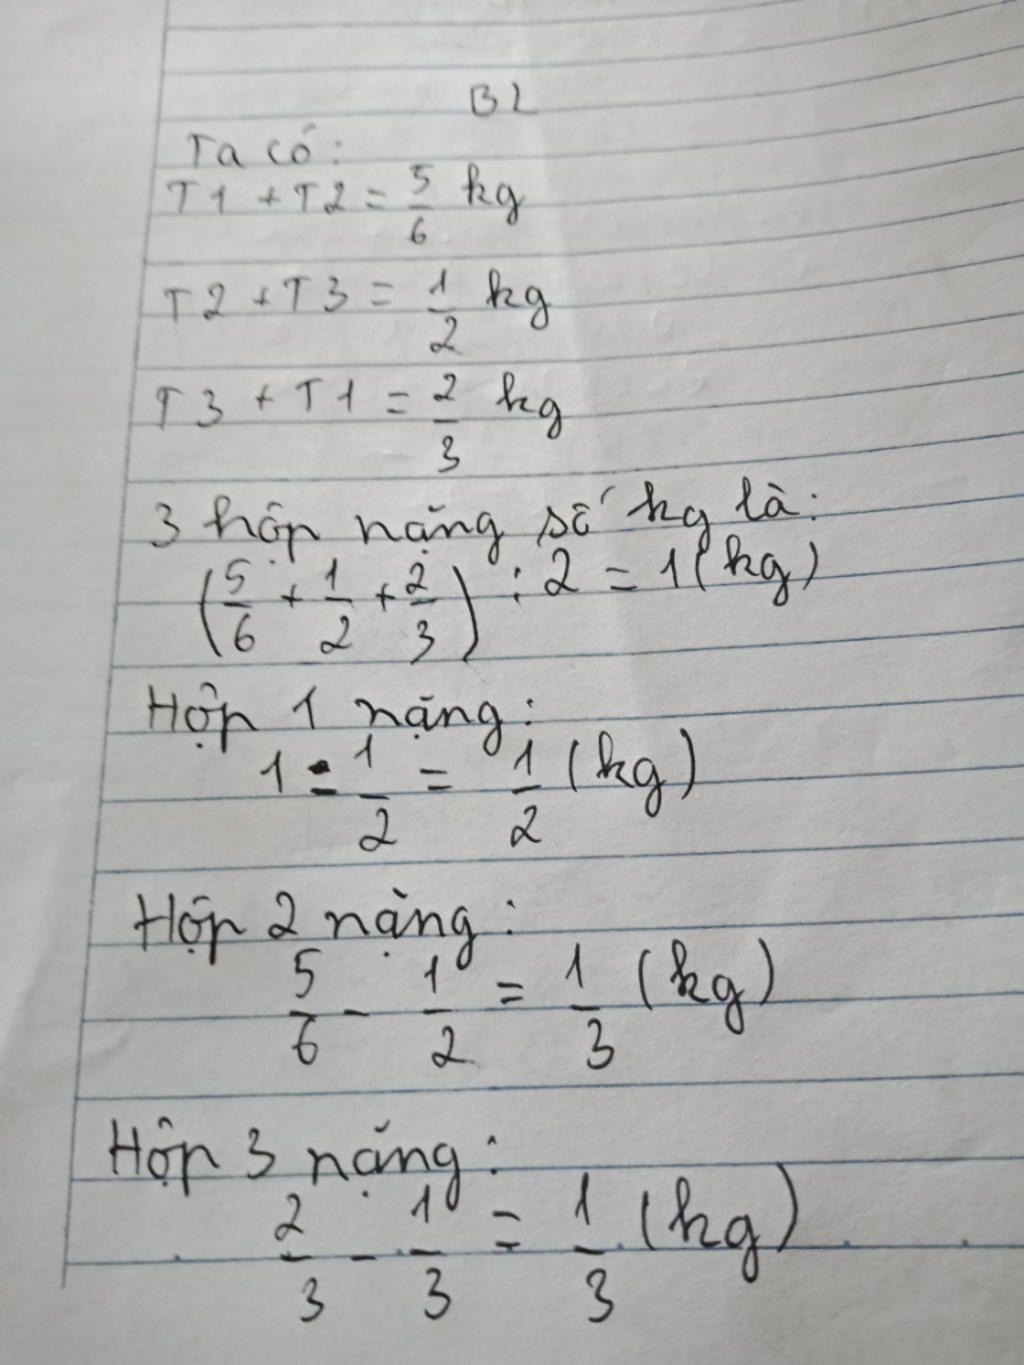 B2
Ta có:
T1 + T2 = 5/6 kg
T2 + T3 = 1/2 kg
T3 + T1 = 2/3 kg
3 hộp nặng số kg là:
(5/6 + 1/2 + 2/3) : 2 = 1 (kg)
Hộp 1 nặng:
1 - 1/2 = 1/2 (kg)
Hộp 2 nặng:
5/6 - 1/2 = 1/3 (kg)
Hộp 3 nặng:
2/3 - 1/3 = 1/3 (kg)